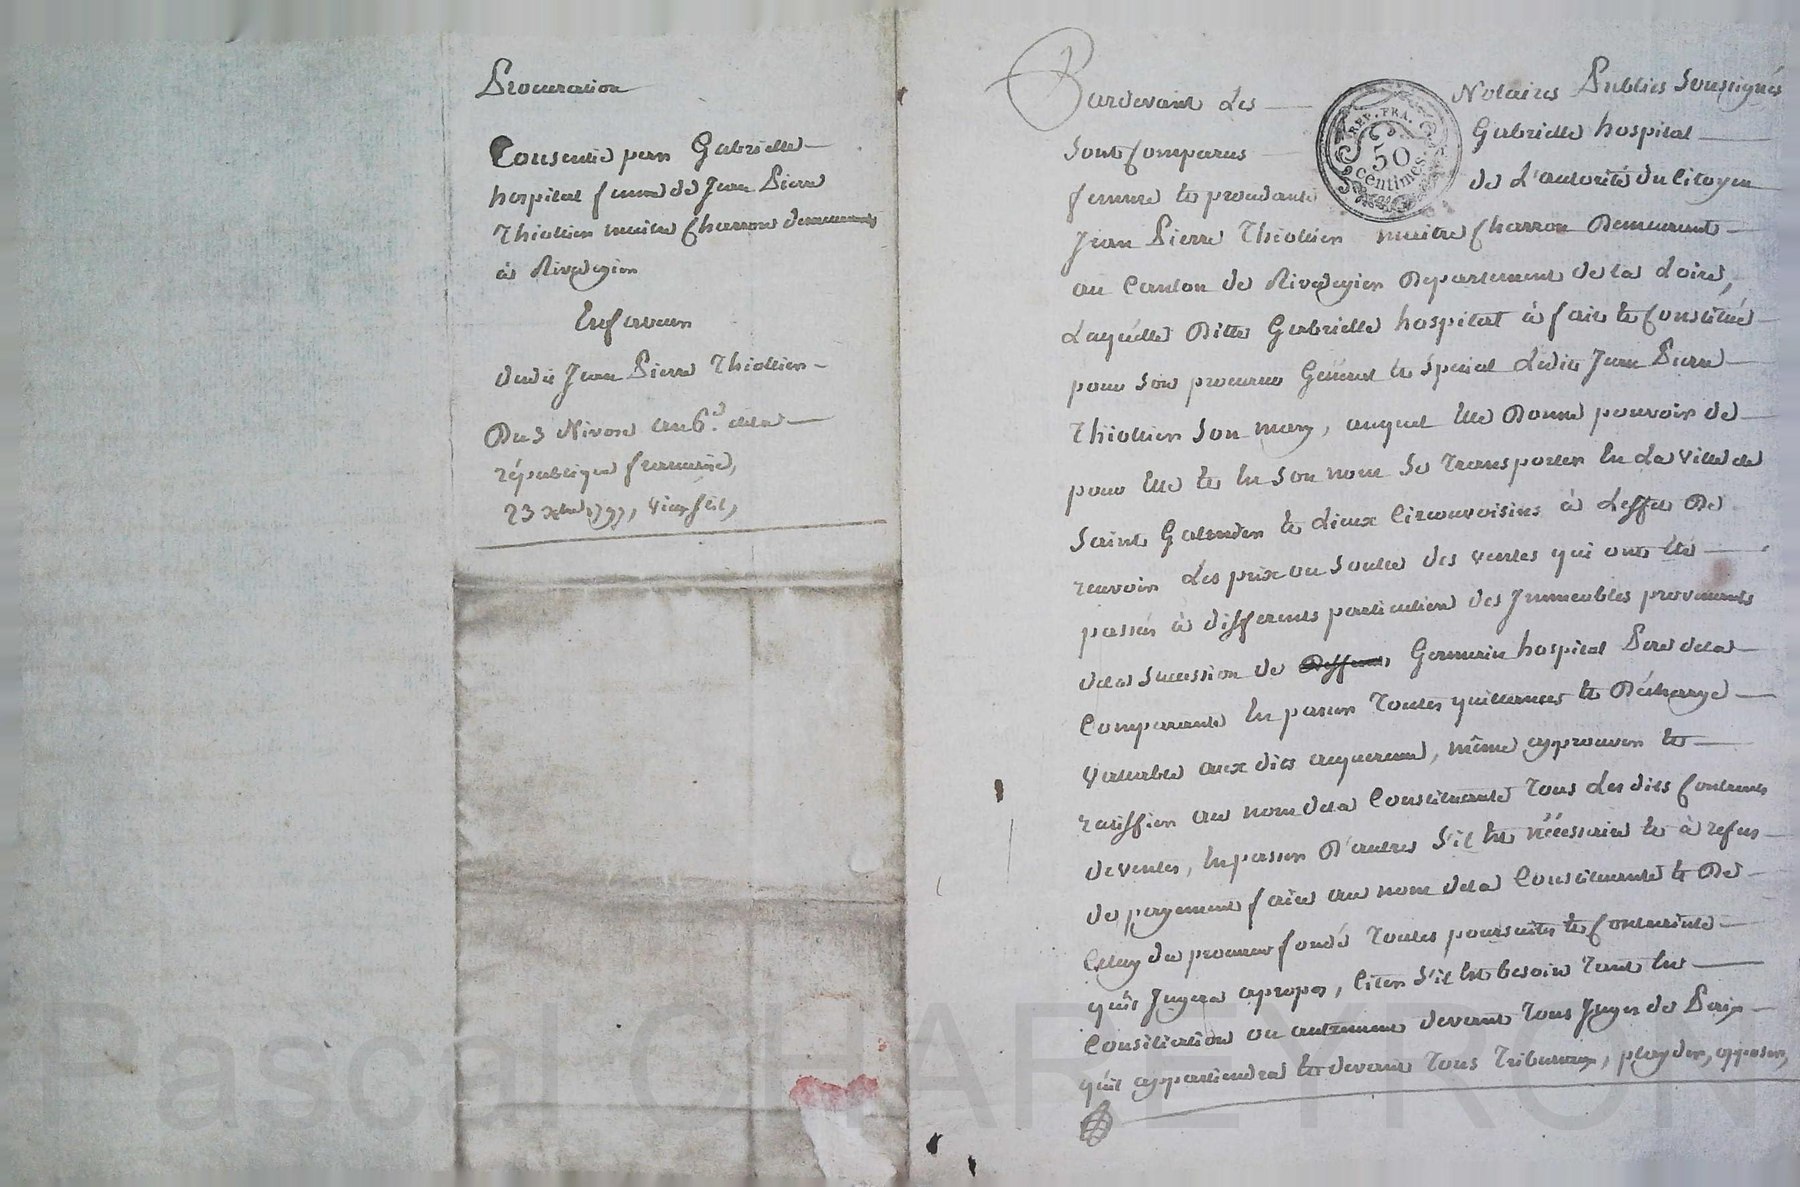 Procuration
Consentie par Gabrielle
hospital femme de Jean Pierre
Thiollier maitre Charron demeurant
à Rivedegier
En faveur
dudit Jean Pierre Thiollier
Du 3 Nivose an 6.e de la
république francaise,
23 xbre 1797, vieux stil,
Pardevant Les Notaires Publics Soussignés
Sont Comparus Gabrielle hospital
femme et procedante de L'autorité du Citoyen
Jean Pierre Thiollier maitre Charron Demeurant
au Canton de Rivedegier Departement de la Loire,
Laquelle Ditte Gabrielle hospital à fait et Constitué
pour Son procureur Général et Special Ledit Jean Pierre
Thiollier Son mary, auquel Elle Donne pouvoir de
pour Elle et En Son nom Se Transporter En La Ville de
Saint Galmier et Lieux Circonvoisins à L'effet De
recevoir Les prix ou Soulte des ventes qui ont Eté
passés à differents particuliers des Immeubles provenants
de la Sucession de Germain hospital Pere de la
Comparante En passer Toutes quittances et Décharge
Valable aux dits acquereurs, même approuver et
ratiffier au nom de la Constituante Tous Les dits Contrats
de ventes, En passer D'autres S'il Est nécéssaire et à refus
de payement faire au nom de la Constituante et De
Celuy du procureur fondé Toutes poursuites et Contrainte
qu'il Jugera apropos, Citer S'il Est besoin Tant En
Consiliation ou autrement devant Tous Juges de Paix
qu'il appartiendra et devant Tous Tribunaux, playder, opposer,
REP. FRA.
50
centimes
Pascal CHAREYRON